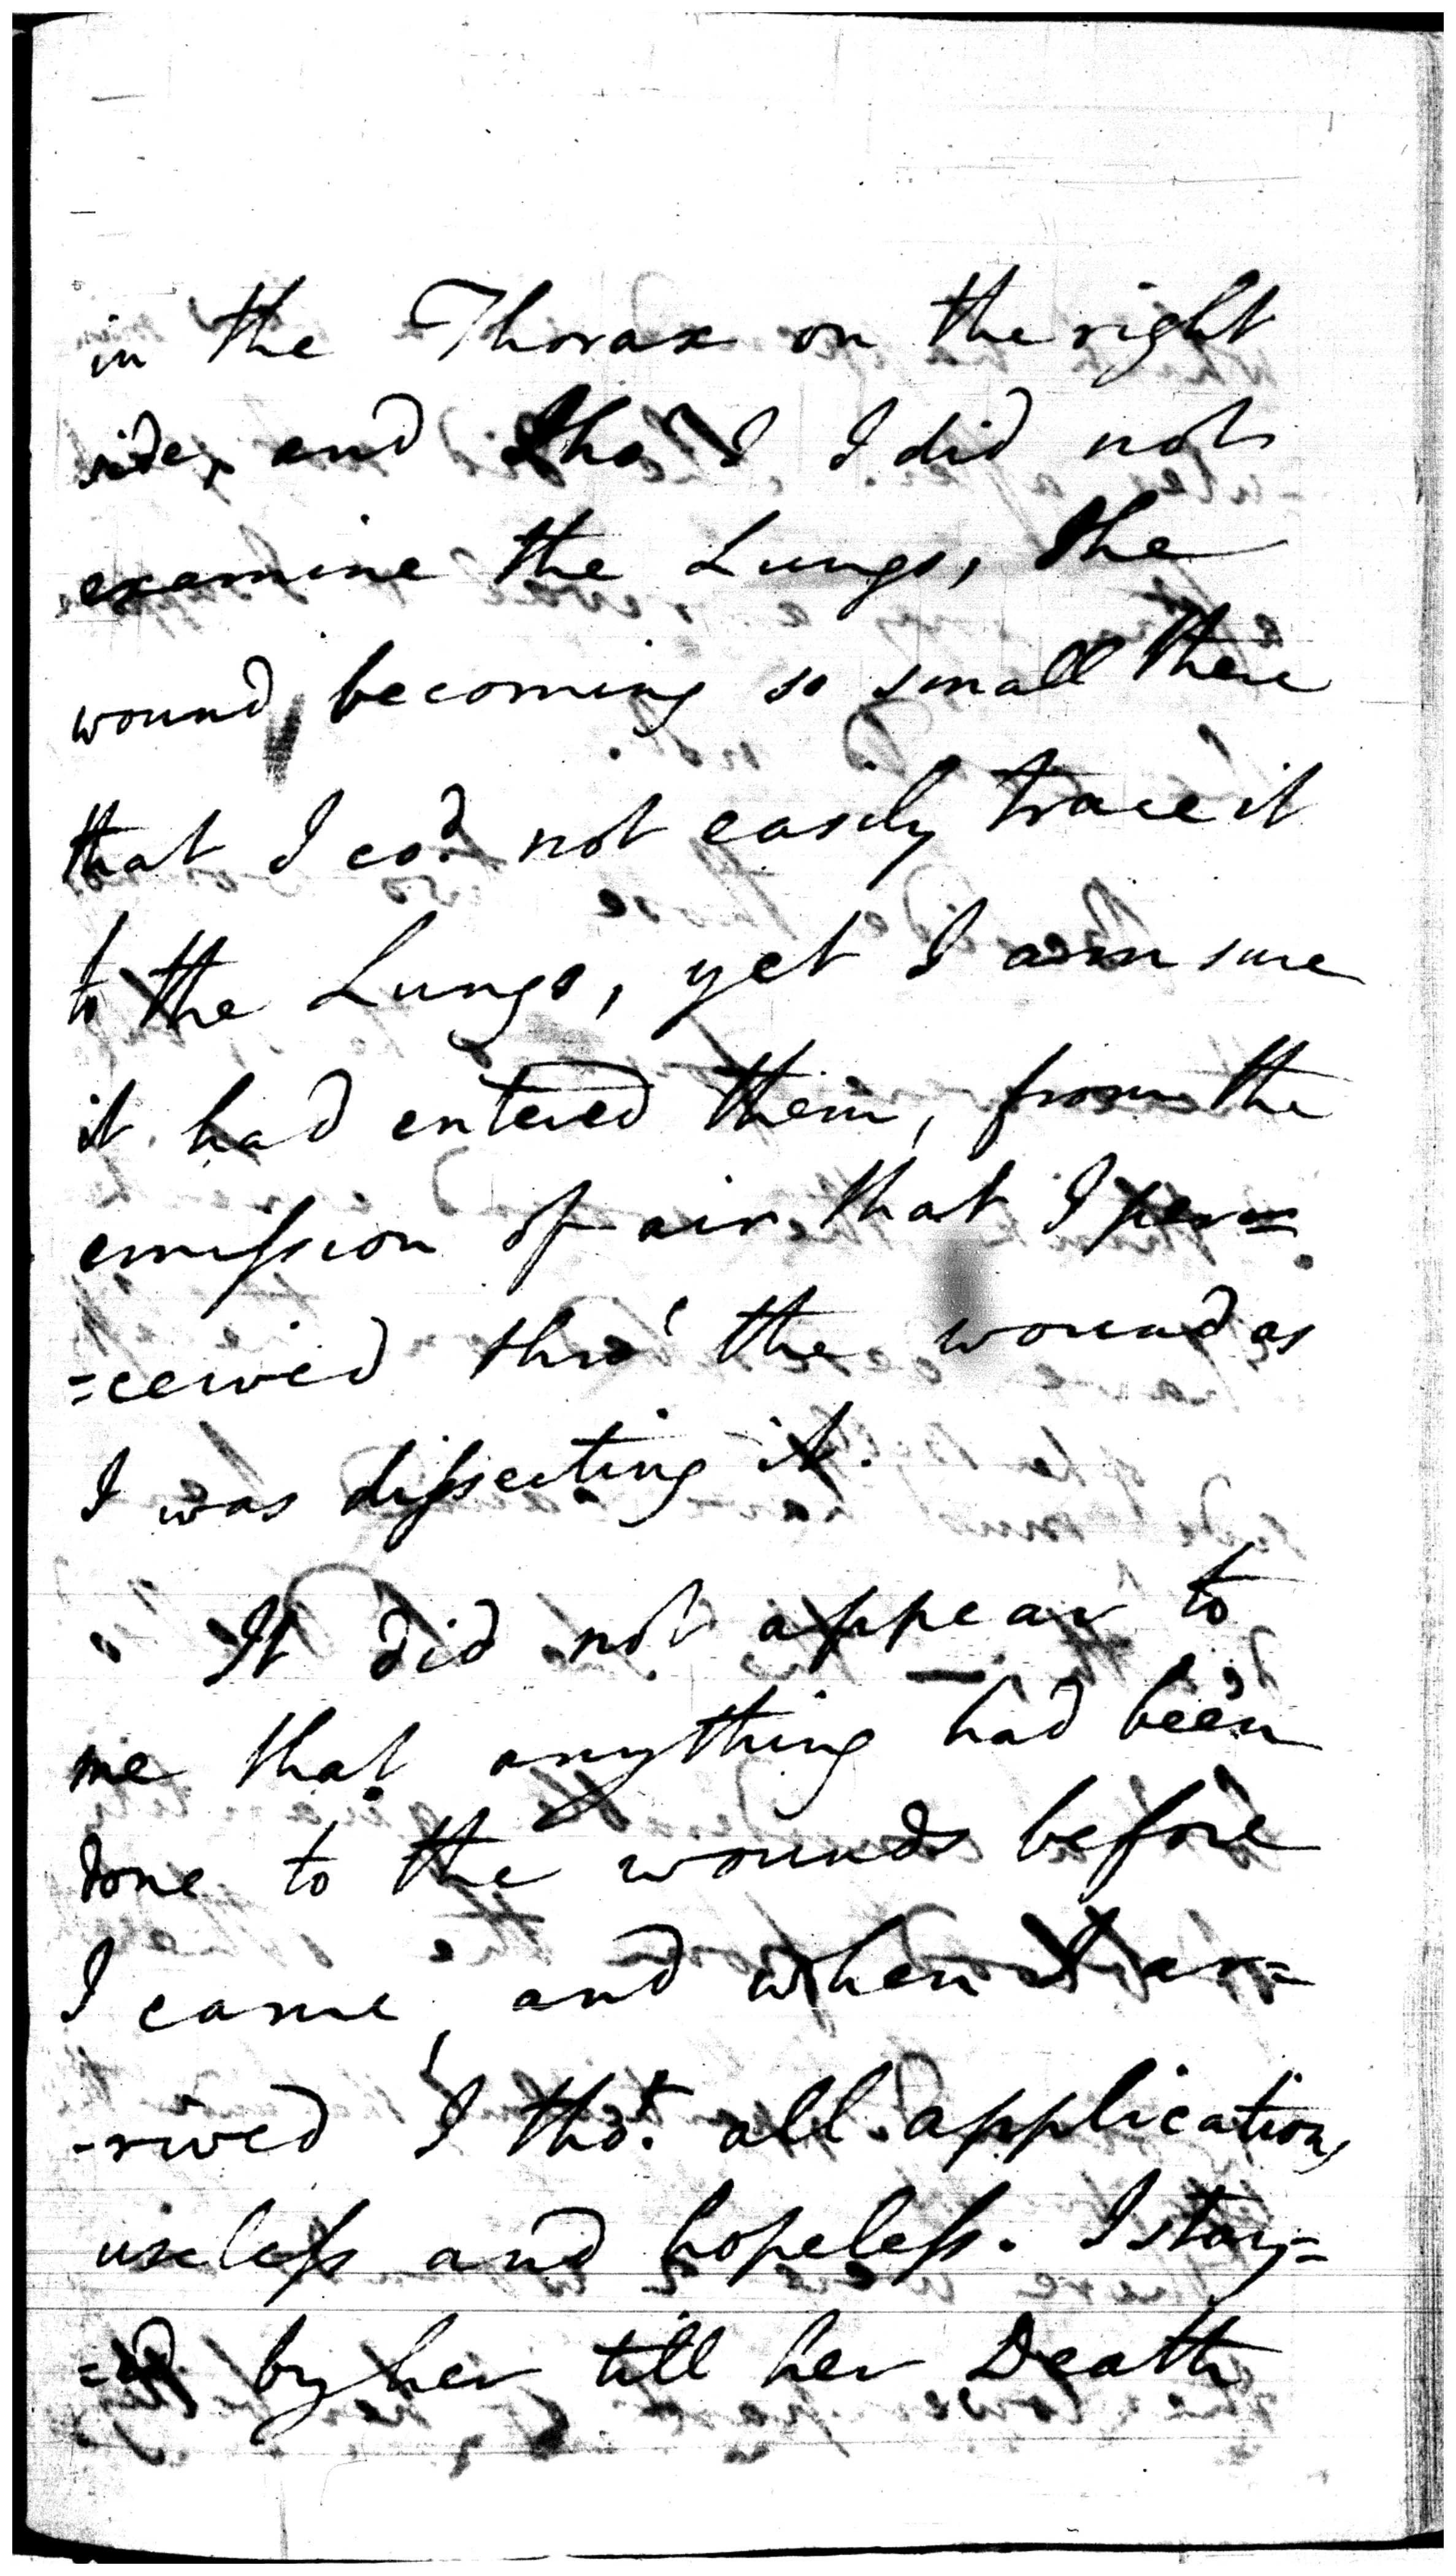 in the Thorax on the right
side, and tho' I did not
examine the Lungs, the
wound becoming so small there
that I cod. not easily trace it
to the Lungs, yet I am sure
it had entered them, from the
emission of air that I per=
=ceived thro' the wound as
I was dissecting it.
" It did not appear to
me that anything had been
done to the wounds before
I came, and when I ar=
-rived I thot. all applications
useless and hopeless. I stay=
=ed by her till her Death